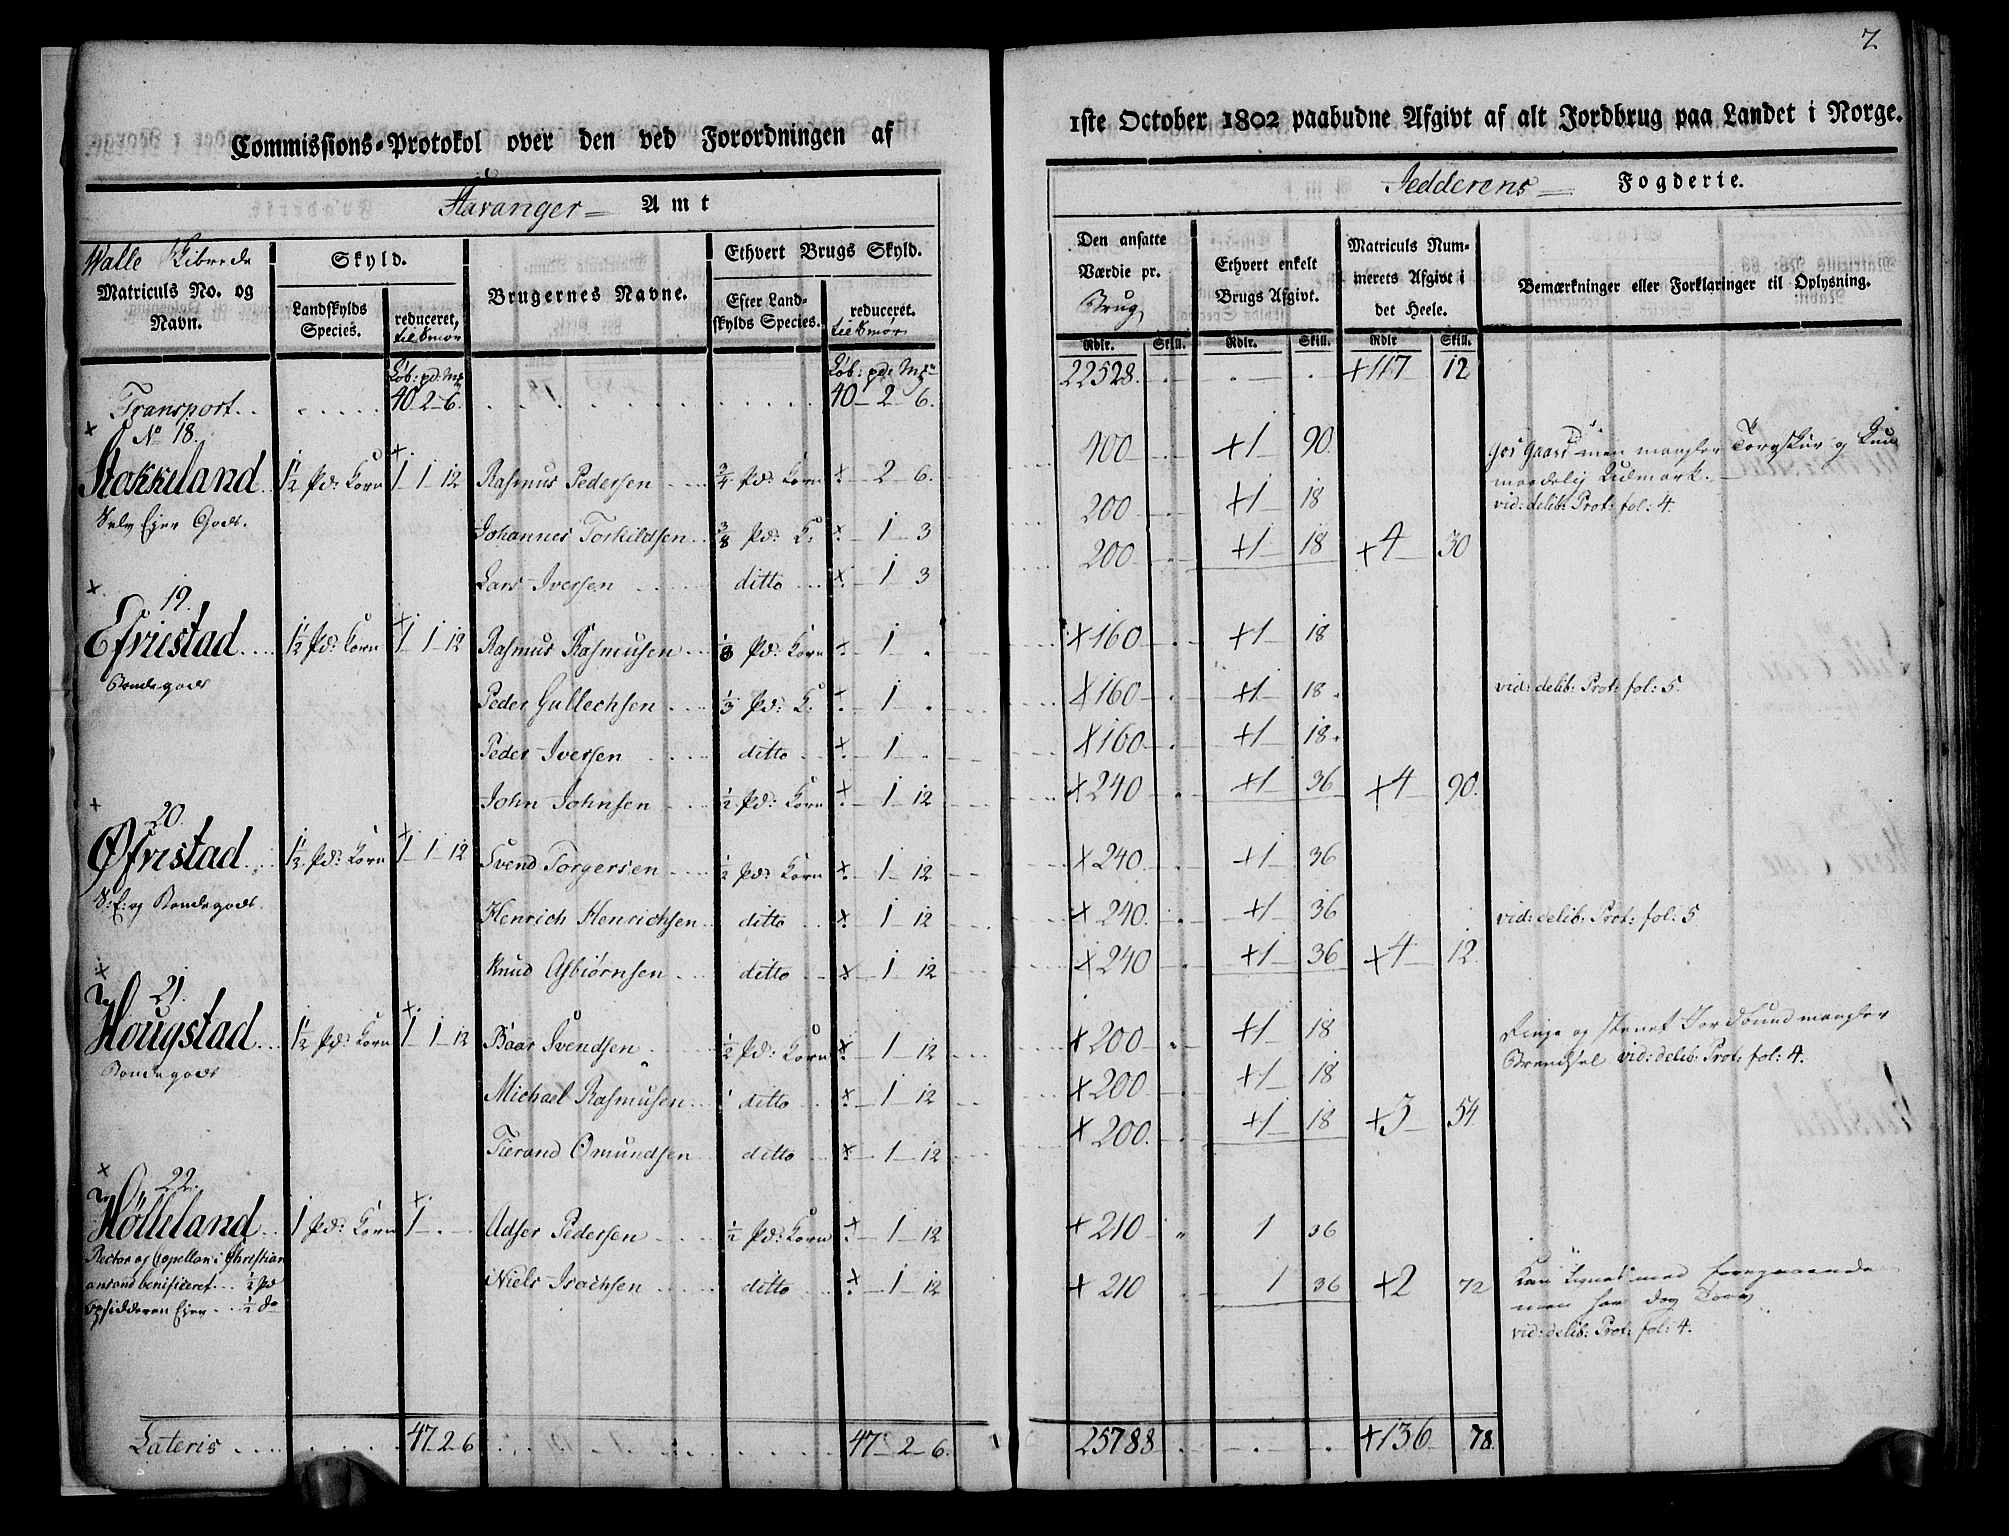 Commissions-Protokol over den ved Forordningen af
Stavanger Amt
Walle
Matriculs No. og
Navn.
Skyld.
Landskylds
Species.
reduceret,
til Smør
Brugernes Navne.
Ethvert Brugs Skyld.
Efter Land-
skylds Species.
reduceret.
til Smør
Transport . . 40 2 6 . . 40 - 2 - 6.
No 18.
Stokkeland 1½ Pd: Korn 1 - 1 - 12 Rasmus Pedersen ¾ Pd: Korn - 2 - 6.
Selv Ejer Gods. Johannes Torkildsen ⅜ Pd: K: - 1 - 3
Lars Iversen ditto - 1 3
19.
Efriestad 1½ Pd: Korn 1 1 12 Rasmus Rasmusen ⅓ Pd: Korn - 1 .
Bondegods Peder Gullechsen ⅓ Pd: K: - 1 .
Peder Iversen ditto - 1 .
John Johnsen ½ Pd: Korn - 1 - 12
20.
Øfristad 1½ Pd: Korn 1 - 1 - 12 Svend Torgersen ½ Pd: Korn - 1 - 12
S: E: og Bondegods. Henrich Henrichsen ditto - 1 - 12
Knud Asbiørnsen ditto - 1 - 12
21.
Hougstad 1½ Pd: Korn 1 1 12 Baar Svendsen ½ Pd: Korn - 1 - 12
Bondegods Michael Rasmusen ditto - 1 - 12
Tierand Omundsen ditto - 1 - 12
22.
Hølleland 1 Pd: Korn 1 - . - Adser Pedersen ½ Pd: Korn - 1 - 12
Rector og Capellan i Christian
ansand benificeret ½ Pd Niels Isachsen ditto - 1 - 12
Opsidderen Ejer ½ do
Lateris 47 2 6 47 - 2 - 6.
7
1ste October 1802 paabudne Afgivt af alt Jordbrug paa Landet i Norge.
Jedderens Fogderie.
Den ansatte
Værdie pr.
Brug
Ethvert enkelt
Brugs Afgivt.
Matriculs Num-
merets Afgivt i
det Heele.
Bemærkninger eller Forklaringer til Oplysning.
Rdlr. Skill. Rdlr. Skill. Rdlr Skill.
22528 . . - . +117 12
400 +1 90
200 +1 18
vid: delib: Prot: fol: 4.
200 +1 18 +4 30
×160 +1 18
×160 +1 18 vid: delib: Prot: fol: 5.
×160 +1 18
×240 +1 36 +4 90.
×240 +1 36
×240 +1 36 vid: delib: Prot: fol: 5
×240 +1 36 +4 12
+200 +1 18
×200 +1 18 vid: delib: Prot: fol: 4.
×200 +1 18 +3 54
+210 1 36
+210 1 36 +2 72
vid: delib: Prot: fol: 4.
25788 . - . +136 78.